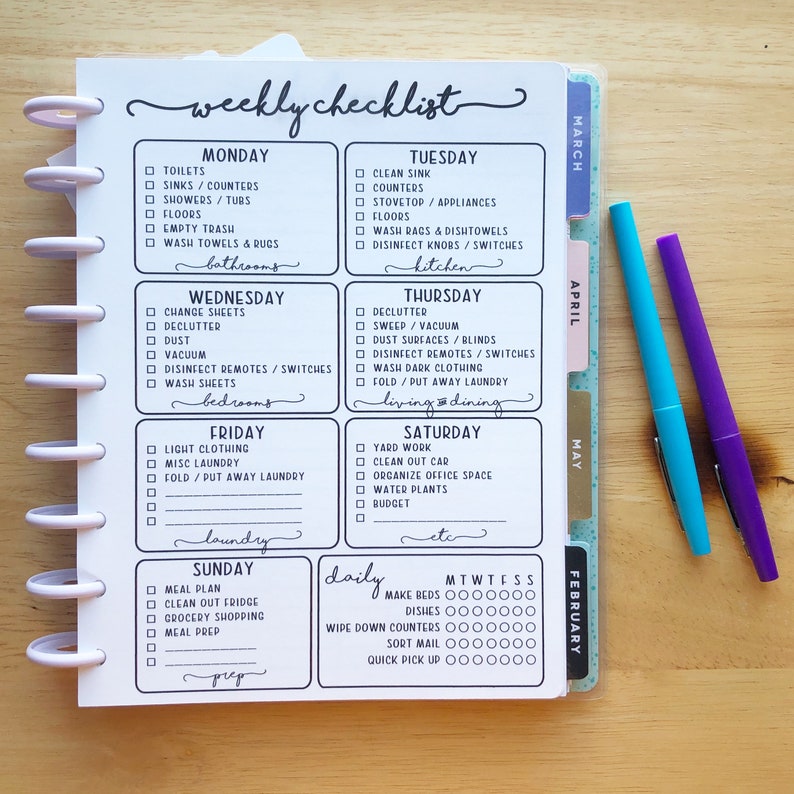 weekly checklist
MONDAY
TOILETS
SINKS / COUNTERS
SHOWERS / TUBS
FLOORS
EMPTY TRASH
WASH TOWELS & RUGS
bathrooms
TUESDAY
CLEAN SINK
COUNTERS
STOVETOP / APPLIANCES
FLOORS
WASH RAGS & DISHTOWELS
DISINFECT KNOBS / SWITCHES
kitchen
WEDNESDAY
CHANGE SHEETS
DECLUTTER
DUST
VACUUM
DISINFECT REMOTES / SWITCHES
WASH SHEETS
bedrooms
THURSDAY
DECLUTTER
SWEEP / VACUUM
DUST SURFACES / BLINDS
DISINFECT REMOTES / SWITCHES
WASH DARK CLOTHING
FOLD / PUT AWAY LAUNDRY
living & dining
FRIDAY
LIGHT CLOTHING
MISC LAUNDRY
FOLD / PUT AWAY LAUNDRY
laundry
SATURDAY
YARD WORK
CLEAN OUT CAR
ORGANIZE OFFICE SPACE
WATER PLANTS
BUDGET
etc
SUNDAY
MEAL PLAN
CLEAN OUT FRIDGE
GROCERY SHOPPING
MEAL PREP
prep
daily M T W T F S S
MAKE BEDS
DISHES
WIPE DOWN COUNTERS
SORT MAIL
QUICK PICK UP
MARCH
APRIL
MAY
FEBRUARY